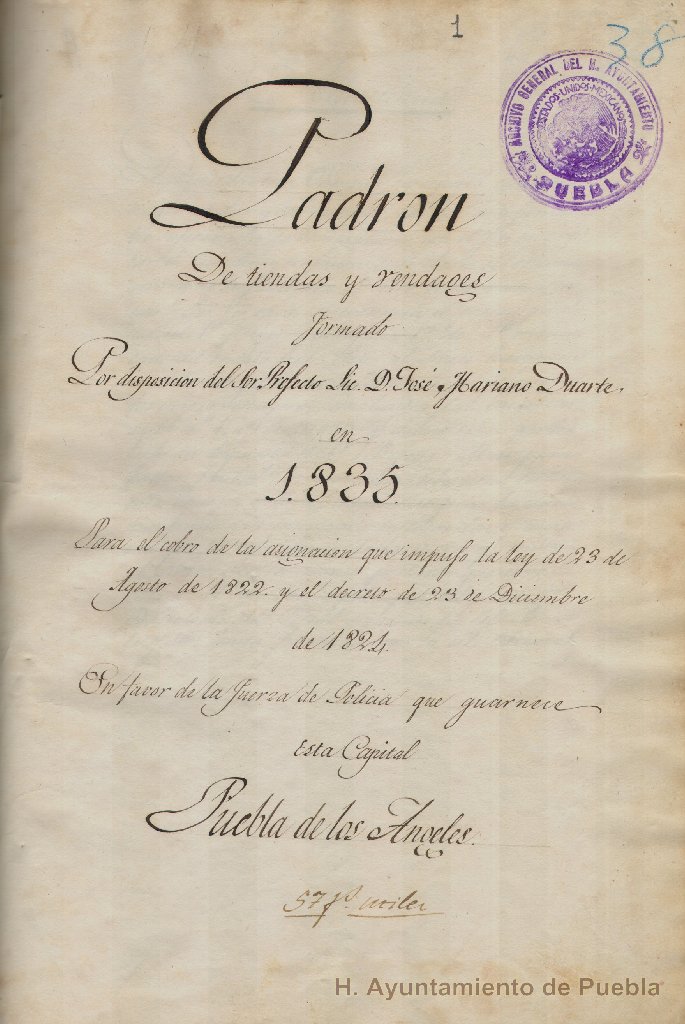 1
38
ARCHIVO GENERAL DEL H. AYUNTAMIENTO
ESTADOS UNIDOS MEXICANOS
PUEBLA
Padron
De tiendas y vendages
formado
Por disposicion del Sor. Prefecto Lic. D. José Mariano Duarte.
en
1.835.
Para el cobro de la asignacion que impuso la ley de 23 de
Agosto de 1822. y el decreto de 23 de Diciembre
de 1824.
En favor de la fuerza de Policia que guarnece
esta Capital
Puebla de los Angeles.
57 fs. utiles
H. Ayuntamiento de Puebla